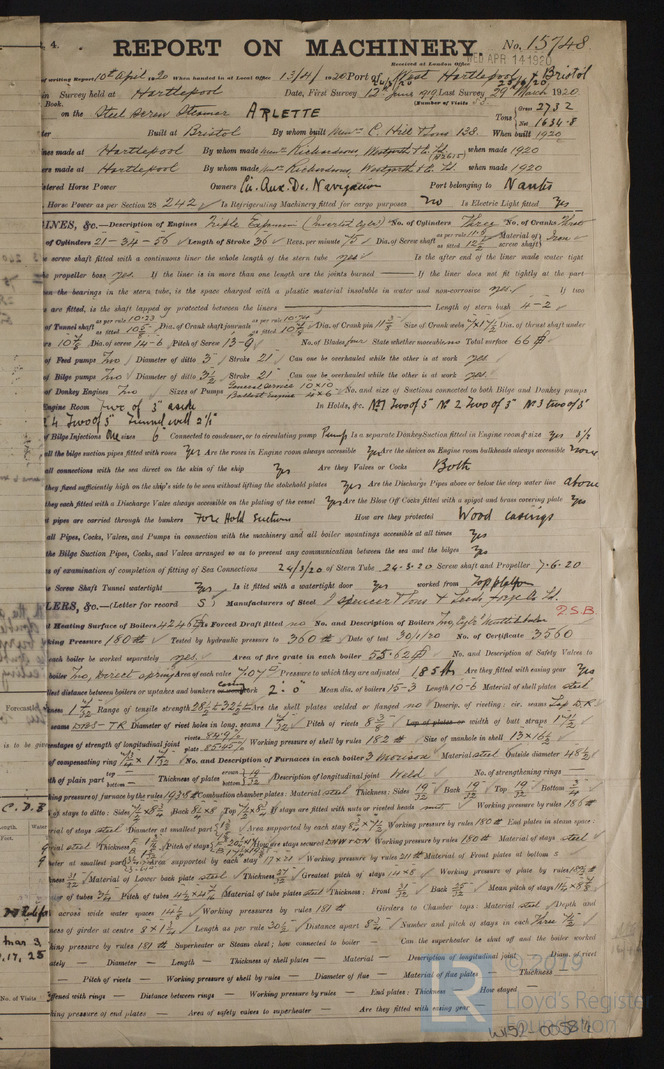 REPORT ON MACHINERY. No. 15748
Received at London Office WED APR 14 1920
of writing Report 10th April 1920 When handed in at Local Office 13/4/1920 Port of West Hartlepool & Bristol
in Survey held at Hartlepool Date, First Survey 12th June 1919 Last Survey 29th March 1920
Book. (Number of Visits
on the Steel Screw Steamer ARLETTE Tons Gross 2732 Net 1634.8
Built at Bristol By whom built Messrs C. Hill & Sons 138. When built 1920
ines made at Hartlepool By whom made Messrs Richardsons, Westgarth & Co. Ld. when made 1920
ers made at Hartlepool By whom made Messrs Richardsons, Westgarth & Co. Ld. when made 1920
stered Horse Power Owners Cie. Aux. De. Navigation Port belonging to Nantes
Horse Power as per Section 28 242 Is Refrigerating Machinery fitted for cargo purposes no Is Electric Light fitted Yes
INES, &c.—Description of Engines Triple Expansion (Inverted Cyls) No. of Cylinders Three No. of Cranks Three
of Cylinders 21-34-56 Length of Stroke 36 Revs. per minute 75 Dia. of Screw shaft as per rule 11.5 as fitted 12½ Material of screw shaft Iron
e screw shaft fitted with a continuous liner the whole length of the stern tube yes Is the after end of the liner made water tight
he propeller boss yes. If the liner is in more than one length are the joints burned — If the liner does not fit tightly at the part
n the bearings in the stern tube, is the space charged with a plastic material insoluble in water and non-corrosive yes If two
s are fitted, is the shaft lapped or protected between the liners — Length of stern bush 4-2
of Tunnel shaft as per rule 10.23 as fitted Dia. of Crank shaft journals as per rule 10.74 as fitted 10⅞ Dia. of Crank pin Size of Crank webs Dia. of thrust shaft under
rs 10⅞ Dia. of screw 14-6 Pitch of Screw 13-9 No. of Blades four State whether moveable no Total surface 66
of Feed pumps Two Diameter of ditto 3 Stroke 21 Can one be overhauled while the other is at work yes
of Bilge pumps Two Diameter of ditto 3½ Stroke 21 Can one be overhauled while the other is at work yes.
of Donkey Engines Two Sizes of Pumps General service 10 × 10 Ballast engine 4 × 6 No. and size of Suctions connected to both Bilge and Donkey pumps
Engine Room Two of 3" aside In Holds, &c. No 1 Two of 3" No 2 Two of 3" No 3 two of 3"
4 Two of 3" Tunnel well 2½"
of Bilge Injections One sizes 6 Connected to condenser, or to circulating pump Pump Is a separate Donkey Suction fitted in Engine room & size yes 3½
all the bilge suction pipes fitted with roses Yes Are the roses in Engine room always accessible Yes Are the sluices on Engine room bulkheads always accessible none
all connections with the sea direct on the skin of the ship Yes Are they Valves or Cocks Both
they fixed sufficiently high on the ship's side to be seen without lifting the stokehold plates Yes Are the Discharge Pipes above or below the deep water line above
they each fitted with a Discharge Valve always accessible on the plating of the vessel Yes Are the Blow Off Cocks fitted with a spigot and brass covering plate Yes
t pipes are carried through the bunkers Fore Hold Suctions How are they protected Wood casings
all Pipes, Cocks, Valves, and Pumps in connection with the machinery and all boiler mountings accessible at all times Yes
the Bilge Suction Pipes, Cocks, and Valves arranged so as to prevent any communication between the sea and the bilges Yes
s of examination of completion of fitting of Sea Connections 24/3/20 of Stern Tube 24-3-20 Screw shaft and Propeller 7-6-20
e Screw Shaft Tunnel watertight Yes Is it fitted with a watertight door Yes worked from Top platform
LERS, &c.—(Letter for record S) Manufacturers of Steel J Spencer & Sons & Leeds Forge Co Ld. P.S.B.
l Heating Surface of Boilers 4246 Is Forced Draft fitted no No. and Description of Boilers Two, Cyl'l Multitubular
king Pressure 180 lb Tested by hydraulic pressure to 360 lb Date of test 30/1/20 No. of Certificate 3560
each boiler be worked separately yes. Area of fire grate in each boiler 55.62 No. and Description of Safety Valves to
boiler Two, Direct spring Area of each valve 7.07 Pressure to which they are adjusted 185 lb Are they fitted with easing gear Yes
lest distance between boilers or uptakes and bunkers or woodwork 2'.0" Mean dia. of boilers 15-3 Length 10-6 Material of shell plates steel
ness Range of tensile strength 28½ to 32½ Are the shell plates welded or flanged no Descrip. of riveting: cir. seams Lap D.R.
seams DBS - TR Diameter of rivet holes in long. seams Pitch of rivets 8⅜ Lap of plates or width of butt straps
entages of strength of longitudinal joint rivets 84.9% plate 85.45% Working pressure of shell by rules 182 lb Size of manhole in shell
of compensating ring No. and Description of Furnaces in each boiler 3 Morison Material steel Outside diameter 48½
th of plain part top — bottom — Thickness of plates crown bottom 19/32 Description of longitudinal joint Weld No. of strengthening rings —
king pressure of furnace by the rules 193 lb Combustion chamber plates: Material steel Thickness: Sides 19/32 Back 19/32 Top 19/32 Bottom ¾
of stays to ditto: Sides Back 8¼ × 8 Top If stays are fitted with nuts or riveted heads nuts Working pressure by rules 186 lb
rial of stays steel Diameter at smallest part Area supported by each stay Working pressure by rules 180 lb End plates in steam space:
rial steel Thickness Pitch of stays How are stays secured Working pressure by rules 180 lb Material of stays steel
ter at smallest part Area supported by each stay 17 × 21 Working pressure by rules 211 lb Material of Front plates at bottom s
kness 31/32 Material of Lower back plate steel Thickness 27/32 Greatest pitch of stays 14 × 8 Working pressure of plate by rules
ter of tubes 3¼ Pitch of tubes Material of tube plates steel Thickness: Front 31/32 Back 25/32 Mean pitch of stays
across wide water spaces 14½ Working pressures by rules 181 lb Girders to Chamber tops: Material steel Depth and
ness of girder at centre Length as per rule 30½ Distance apart 8¾ Number and pitch of stays in each Three
king pressure by rules 181 lb Superheater or Steam chest; how connected to boiler — Can the superheater be shut off and the boiler worked
ately — Diameter — Length — Thickness of shell plates — Material — Description of longitudinal joint Diam. of rivet
— Pitch of rivets — Working pressure of shell by rules — Diameter of flue — Material of flue plates — Thickness —
ffened with rings — Distance between rings — Working pressure by rules — End plates: Thickness — How stayed
king pressure of end plates — Area of safety valves to superheater — Are they fitted with easing gear
© 2019
Lloyd's Register
Foundation
W152-0058½